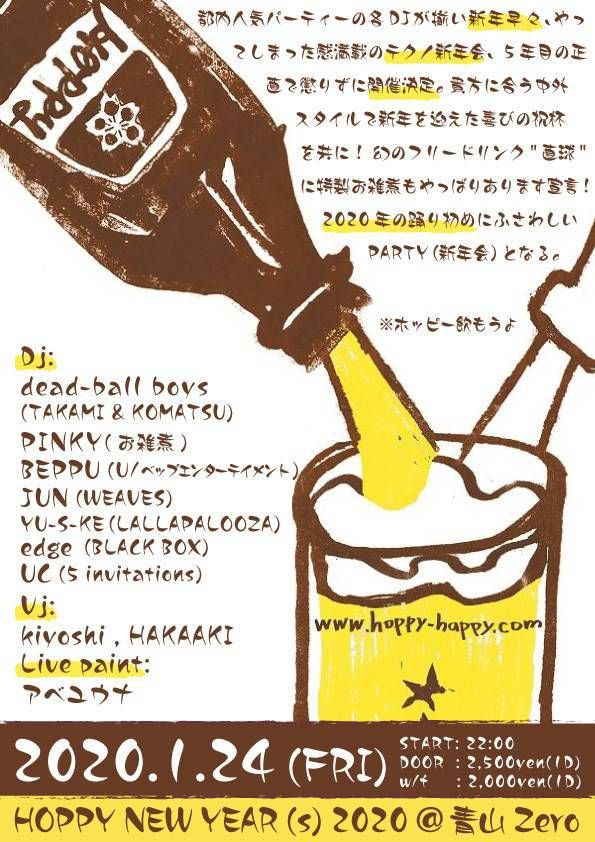 都内人気パーティーの各DJが揃い新年早々、やっ
てしまった感満載のテクノ新年会、5年目の正
直で懲りずに開催決定。貴方に合う中外
スタイルで新年を迎えた喜びの祝杯
を共に！幻のフリードリンク"直球"
に特製お雑煮もやっぱりあります宣言！
2020年の踊り初めにふさわしい
PARTY(新年会)となる。
※ホッピー飲もうよ
Hoppy
Dj:
dead-ball boys
(TAKAMI & KOMATSU)
PINKY(お雑煮)
BEPPU (U/ベップエンターテイメント)
JUN (WEAVES)
YU-S-KE (LALLAPALOOZA)
edge (BLACK BOX)
UC (5 invitations)
Vj:
kiyoshi , HAKAAKI
Live paint:
アベユウナ
www.hoppy-happy.com
2020.1.24 (FRI)
START: 22:00
DOOR : 2,500yen(1D)
w/f : 2,000yen(1D)
HOPPY NEW YEAR (s) 2020 @ 青山 Zero